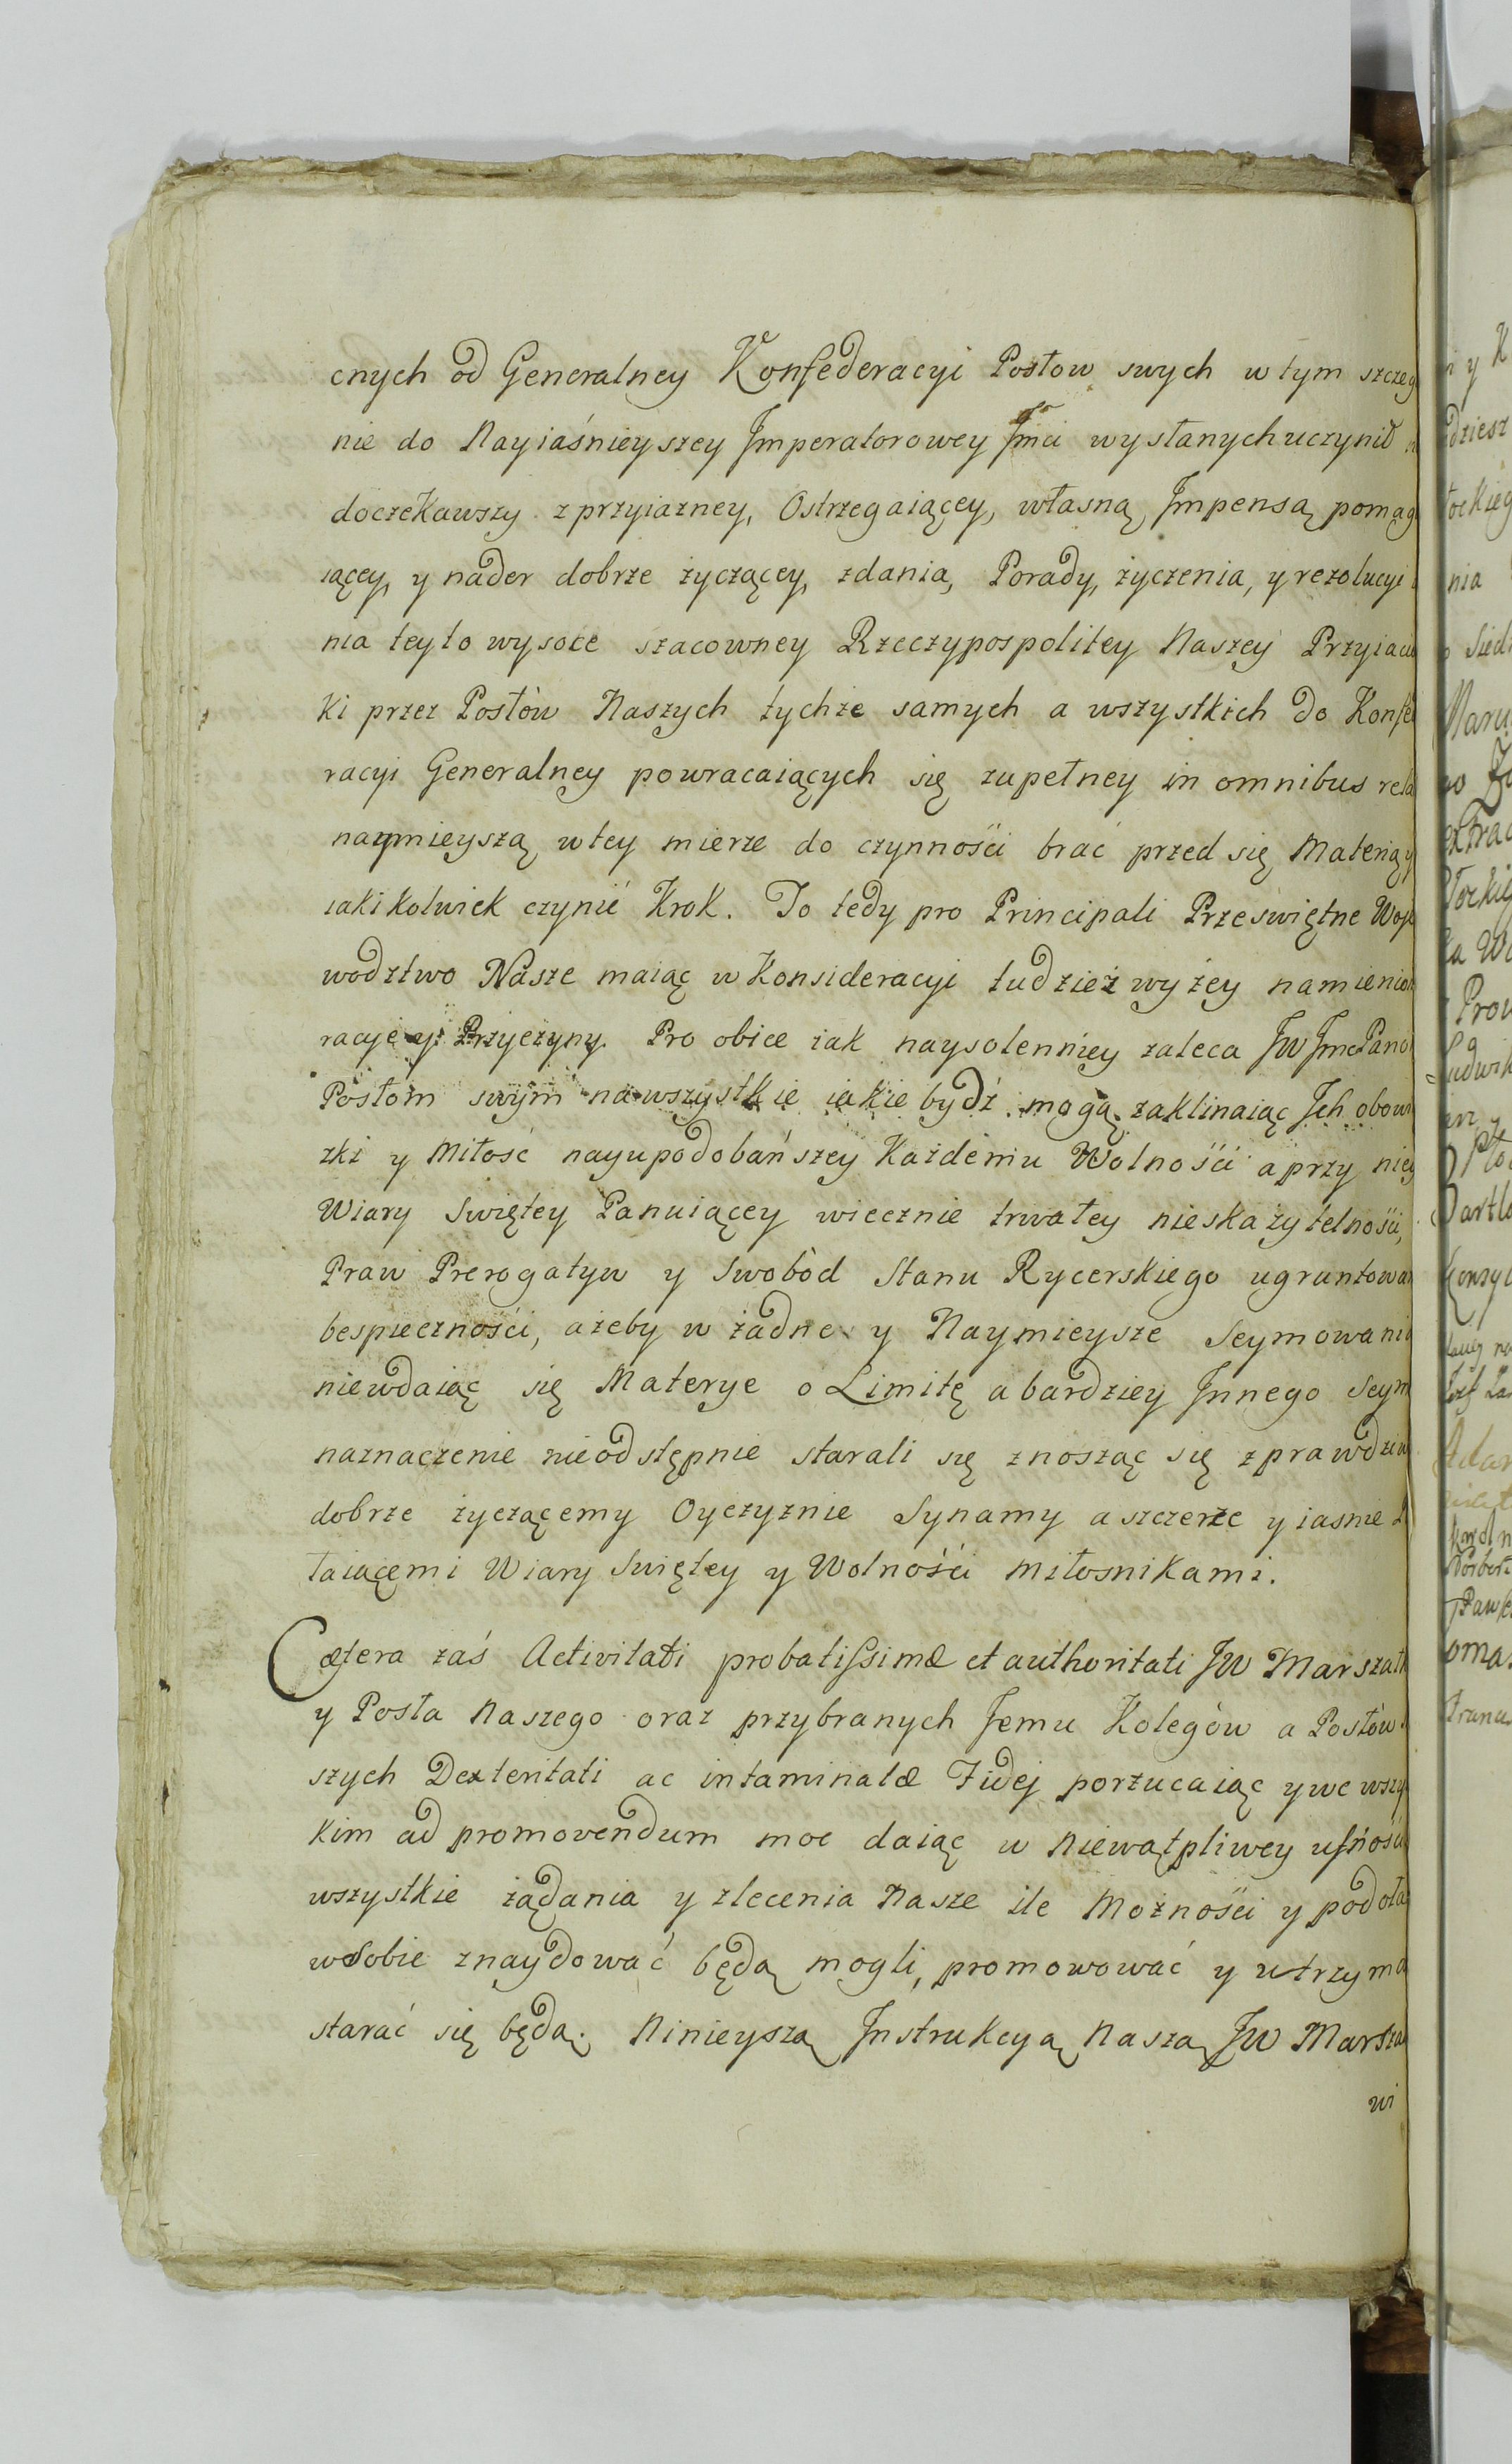 cnych od Generalney Konfederacyi Posłow swych w tym szczeg
nie do Nayiaśnieyszey Jmperatorowey Jmci wysłanych uczynił
doczekawszy z przyiazney, Ostrzegaiącey, własną Jmpensą pomag
iącey, y nader dobrze życzącey, zdania, Porady, życzenia, y rezolucyi
nia teyto wysoce szacowney Rzeczypospolitey Naszey Przyiaciu
ki przez Posłòw Naszych tychże samych a wszystkich do Konfe
racyi Generalney powracaiących się zupełney in omnibus rela
naymnieyszą w tey mierze do czynnośći brać przed się Materiąy
iakikolwiek czynić Krok. To tedy pro Principali Przeswiętne Woje
wodztwo Nasze maiąc w Konsideracyi tudzież wyżey namienion
racye y Przyczyny. Pro obice iak naysolenniey zaleca JW JmcPano
Posłom swym na wszystkie iakie bydź mogą zaklinaiąc Jch obowi
zki y Miłosć nayupodobańszey Każdemu Wolnośći a przy niey
Wiary Swiętey Panuiącey wiecznie trwałey nieskazytelnośći,
Praw Prerogatyw y Swobòd Stanu Rycerskiego ugruntowan
bespiecznośći, ażeby w żadne y Naymieysze Seymowania
niewdaiąc się Materye o Limitę a bardziey Jnnego Seym
naznaczenie nieodstępnie starali się znosząc się z prawdziw
dobrze życzącemy Oyczyznie Synamy a szczerze y iasnie
taiącemi Wiary Swiętey y Wolnośći miłosnikami.
Cætera zaś Activitati probatissimæ et authoritati JW Marszałk
y Posła Naszego oraz przybranych Jemu Kolegòw a Posłòw
szych Dexteritati ac intaminatæ Fidej porzucaiąc y we wszy
kim ad promovendum moc daiąc w niewątpliwey ufnośći
wszystkie żądania y zlecenia Nasze ile Możnośći y podoła
w Sobie znaydować będą mogli, promowować y utrzyma
starać się będą. Ninieyszą Jnstrukcyą Naszą JW Marsza
wi